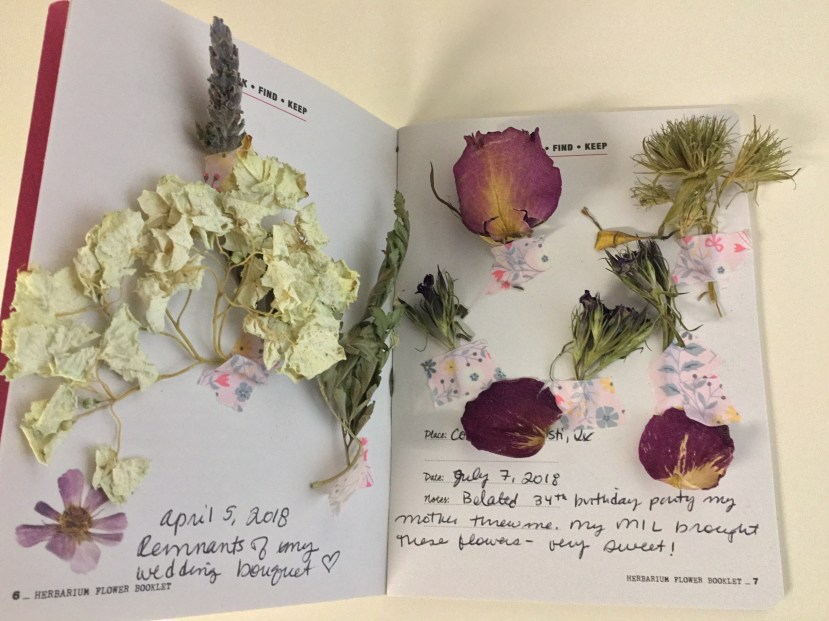 • FIND • KEEP
april 5, 2018
Remnants of my
wedding bouquet ♡
6 _ HERBARIUM FLOWER BOOKLET
• FIND • KEEP
Place:
Date: July 7, 2018
Notes: Belated 34th birthday party my
mother threw me. My MIL brought
these flowers - very sweet!
HERBARIUM FLOWER BOOKLET _ 7